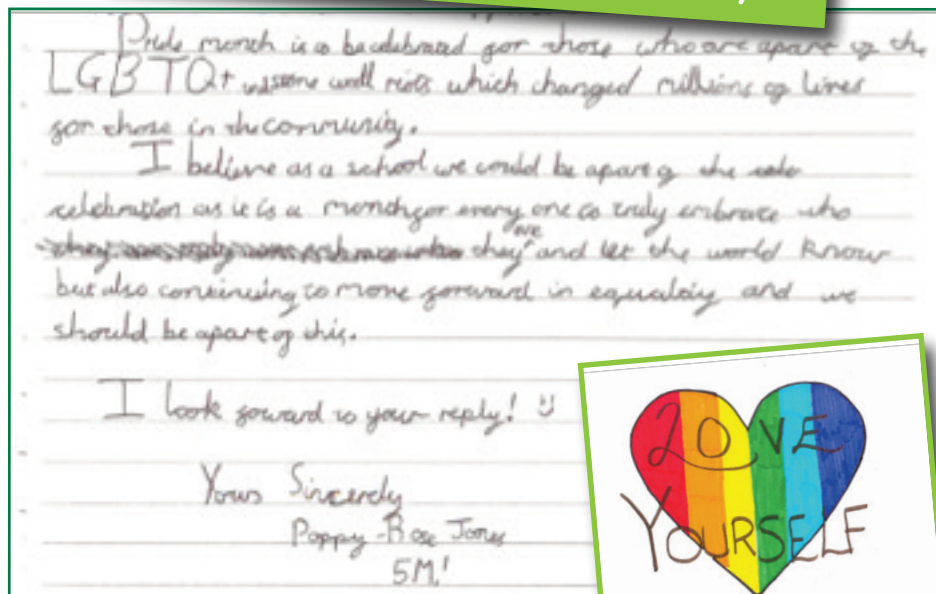 Pride month is to be celebrated for those who are apart of the
LGBTQ+ stone wall riots which changed millions of lives
for those in the community.
I believe as a school we could be apart of the
celebration as it is a month for every one to truly embrace who
they are and let the world know
but also continuing to move forward in equality and we
should be apart of this.
I look foward to your reply!
Yours Sincerely
Poppy-Rose Jones
5M!
LOVE
YOURSELF